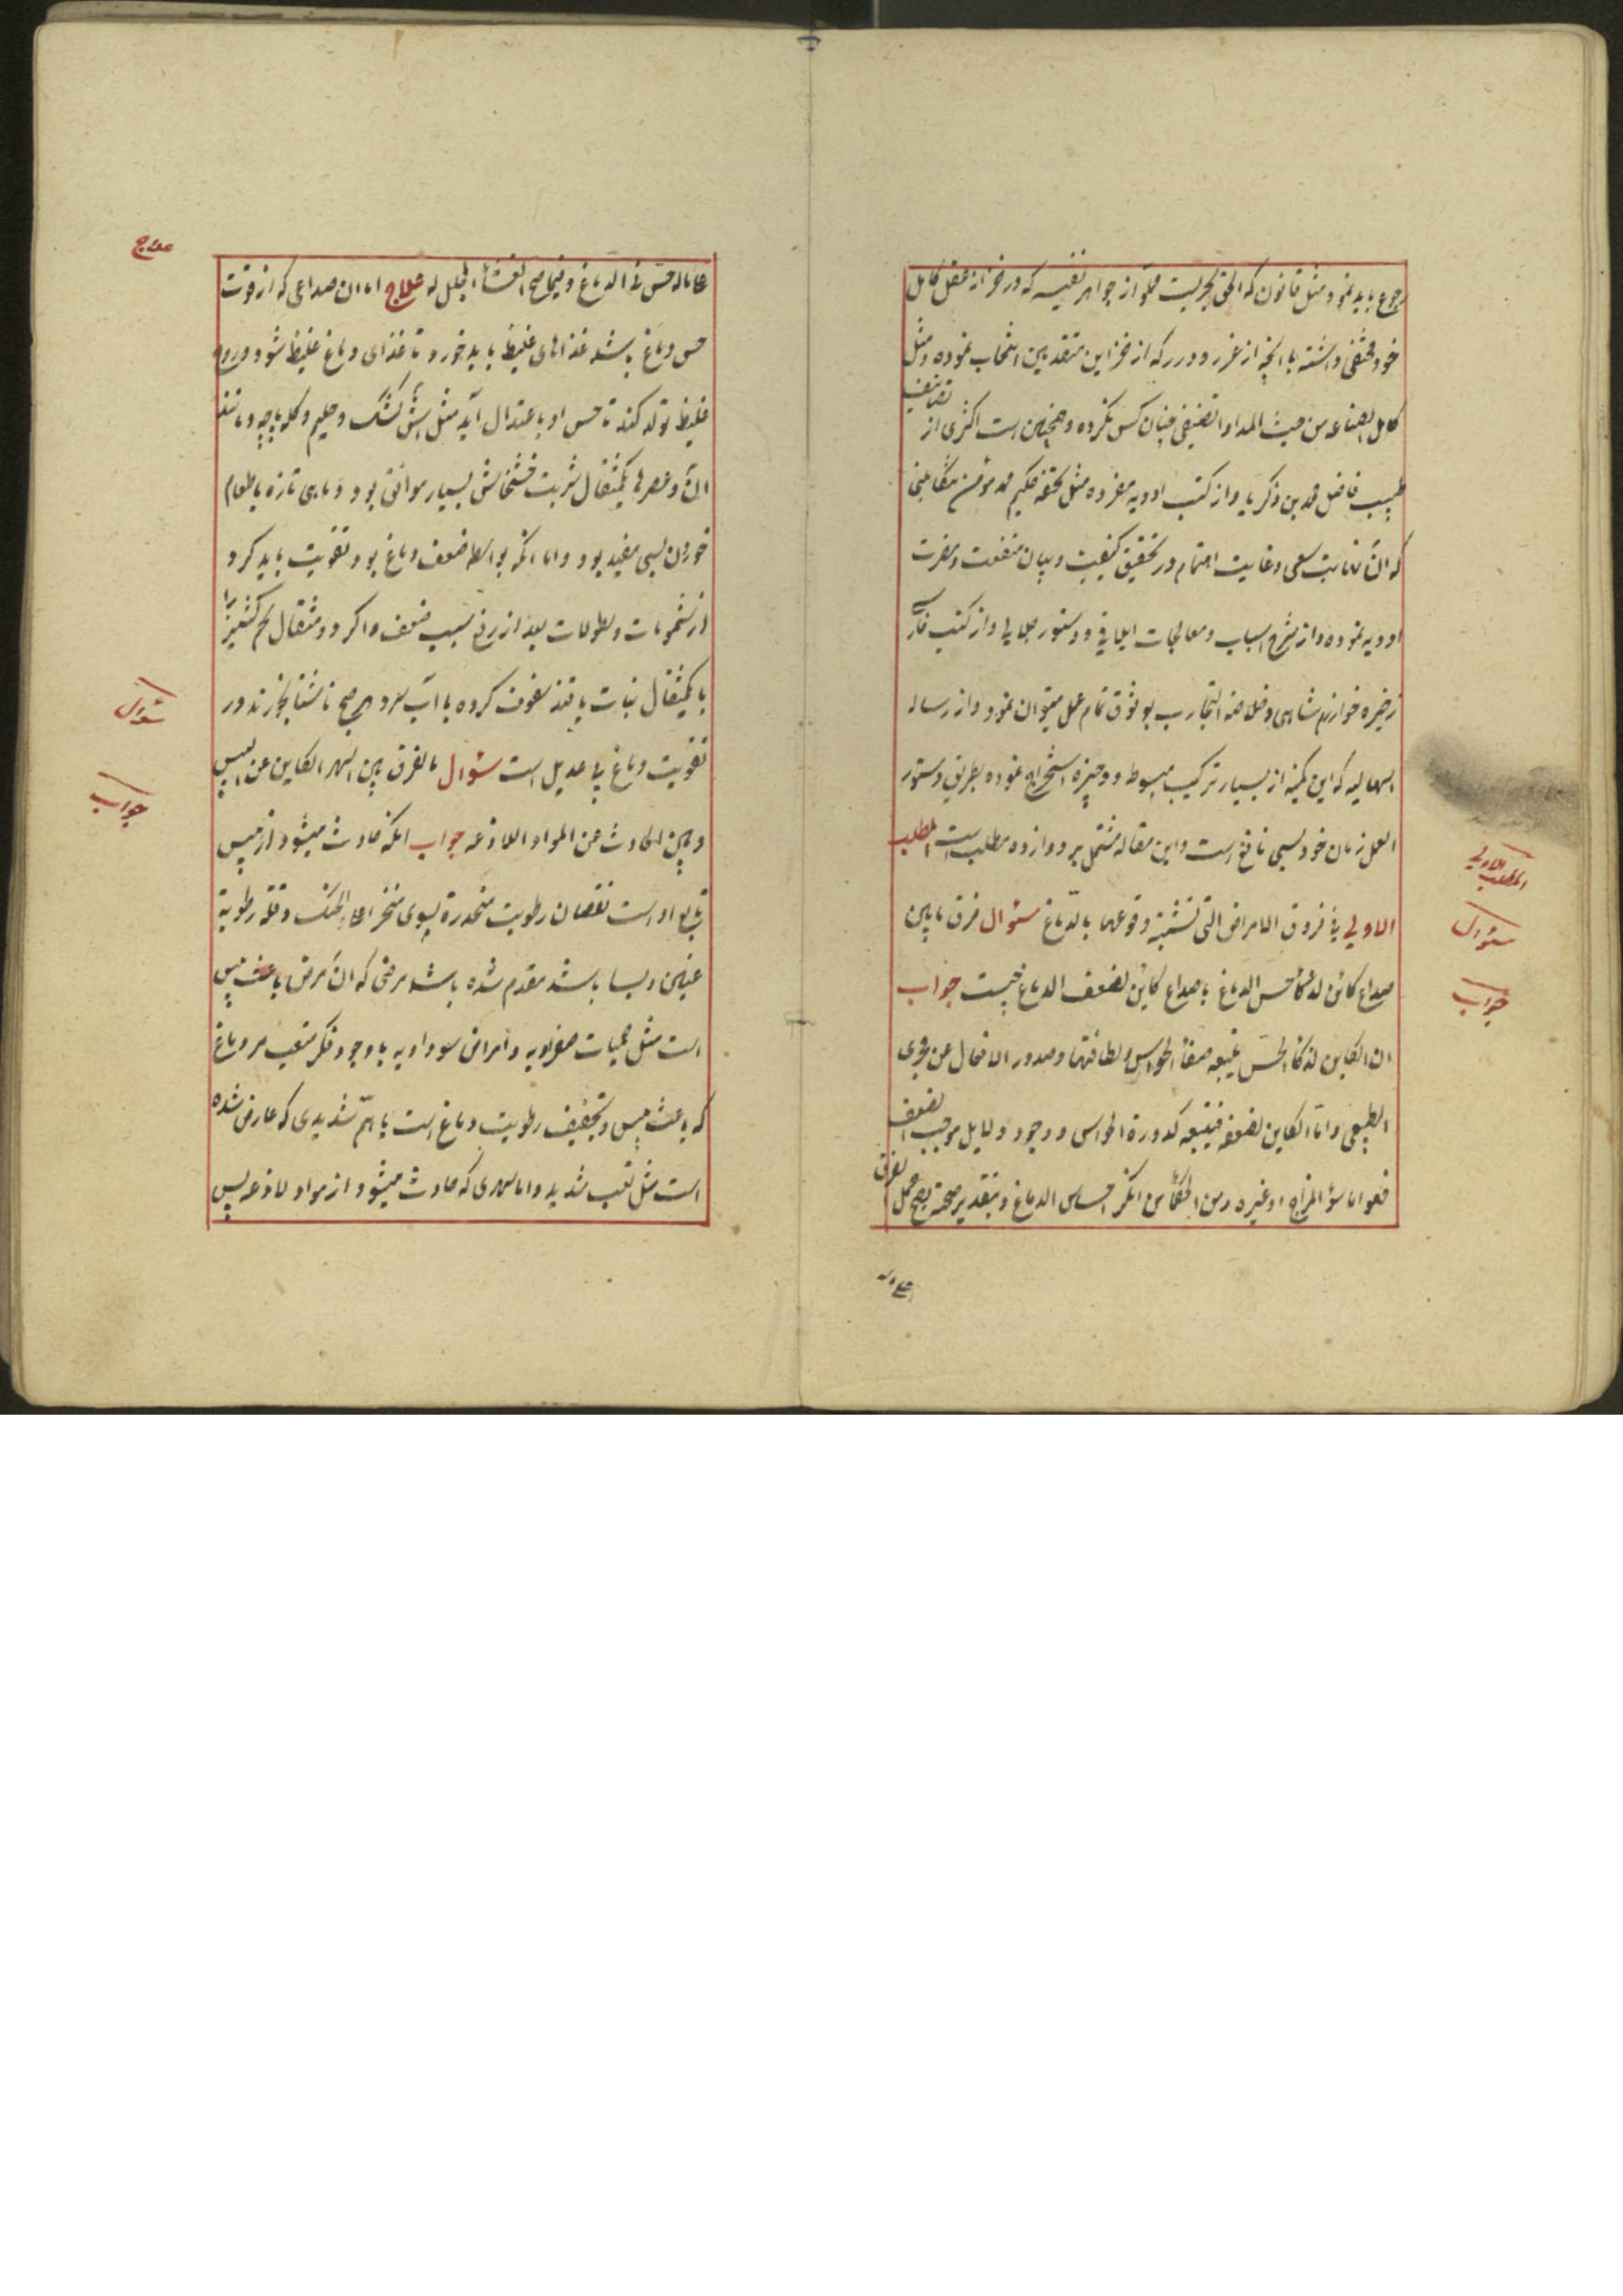 رجوع باید نمود مثل قانون که الحق بحریست مملو از جواهر نفیسه که در خزانه عقل کامل
خود مختفی داشته با آنچه از غرر و درر که از خزاین متقدمین انتخاب نموده و مثل
کامل الصناعه من حیث المداوا تصنیفی چنان کس نکرده و همچنین است اکثری از تصانیف
طبیب فاضل محمد بن ذکریا و از کتب ادویه مفرده مثل تحفه حکیم محمد مؤمن تنکابنی
که الآن نهایت سعی و غایت اهتمام در تحقیق کیفیت و بیان منفعت و مضرت
ادویه نموده و از شرح اسباب و معالجات ایلاقی و دستور جلالی و از کتب فارسی
ذخیره خوارزمشاهی و خلاصة التجارب بوثوق تمام عمل میتوان نمود و از رساله
اسهالیه که این کمینه از بسیار ترکیب مبسوط و وجیزه استخراج نموده بطریق دستور
العمل زمان خود بسی نافع است و این مقاله مشتمل بر دوازده مطلب است المطلب
الاولی فی فروق الامراض التی تشتبه وقوعها بالدماغ سئوال فرق مابین
صداع کائن لذکاء حس الدماغ با صداع کاین لضعف الدماغ چیست جواب
ان الکاین لذکاء الحس یتبعه صفاء الحواس و لطافتها و صدور الافعال عن مجری
الطبیعی و اما الکاین لضعفه فیتبعه کدورة الحواس و وجود دلایل موجب الضعف
فهو اما سوء المزاج او غیره و من الحکماء من انکر احساس الدماغ و بتقدیر صحته یصح حمل الفرق
علی
المطلب الاولی
سئوال
جواب
علاج
عاماله حس فی الدماغ و فیما صح الغشاء المجلل له علاج اما ان صداعی که از قوت
حس دماغ باشد غذاهای غلیظ باید خورد تا غذای دماغ غلیظ شود و روح
غلیظ تولد کند تا حس او باعتدال آید مثل آش کشک و حلیم و کله پاچه و مانند
آن و عصرها یکمثقال شربت خشخاش بسیار موافق بود و ماهی تازه با طعام
خوردن بسی مفید بود و اما آنکه بواسطه ضعف دماغ بود تقویت باید کرد
از شمومات و نطولات بعد از رفع سبب ضعف و اگر دو مثقال تخم کشنیز را
با یکمثقال نبات یا قند سفوف کرده با آب سرد هر صبح ناشتا بخورند در
تقویت دماغ بی عدیل است سئوال ما الفرق بین السهر الکاین عن الیبس
و بین الحادث عن المواد اللاذعه جواب آنکه حادث میشود از یبس
تابع او است نقصان رطوبت منحدرة بسوی منخر و اعلاء الحنک و قلة رطوبة
عینین و بسا باشد مقدم شده باشد مرضی که آن مرض باعث یبس
است مثل حمیات صفراویه و امراض سوداویه با وجود فکر متعب مر دماغ
که باعث یبس و تجفیف رطوبت دماغ است یا هم شدیدی که عارض شده
است مثل تعب شدید و اما سهری که حادث میشود از مواد لاذعه پس
سئوال
جواب